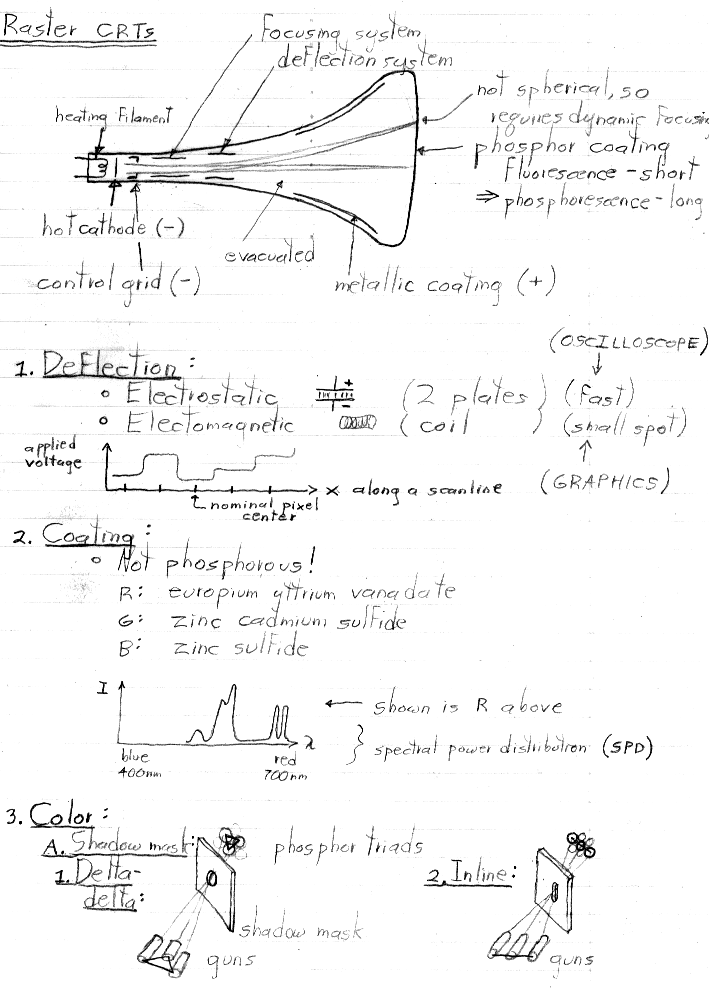 Raster CRTs
focusing system
deflection system
not spherical, so
requires dynamic focusing
heating filament
phosphor coating
fluorescence - short
⇒ phosphorescence - long
hot cathode (-)
evacuated
control grid (-)
metallic coating (+)
(OSCILLOSCOPE)
1. Deflection:
∘ Electrostatic + - (2 plates) (fast)
∘ Electomagnetic (coil) (small spot)
applied
voltage
x along a scanline
(GRAPHICS)
nominal pixel
center
2. Coating:
∘ Not phosphorous!
R: europium yttrium vanadate
G: zinc cadmium sulfide
B: zinc sulfide
I
← shown is R above
λ } spectral power distribution (SPD)
blue red
400nm 700nm
3. Color:
A. Shadow mask: phosphor triads
1. Delta-
delta:
2. Inline:
shadow mask
guns
guns